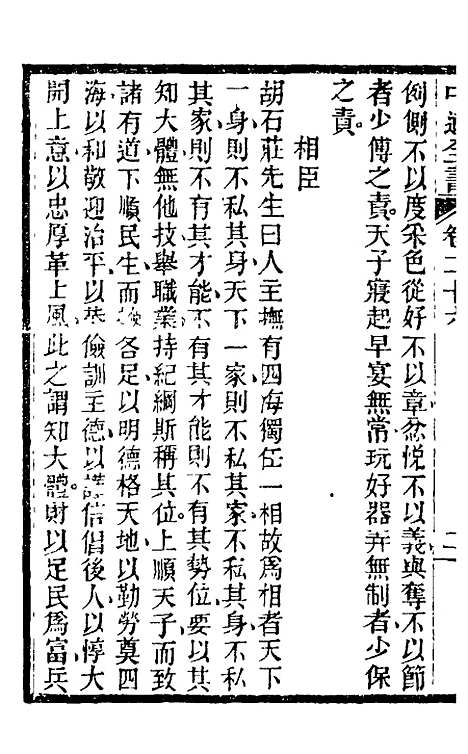 中通全書 卷二十六 二
例側不以度采色從好不以章忿悅不以義與奪不以節
者少傅之責天子寢起早宴無常玩好器弄無制者少保
之責
相臣
胡石莊先生曰人主撫有四海獨任一相故爲相者天下
一身則不私其身天下一家則不私其家不私其身不私
其家則不有其才能不有其才能則不有其勢位要以其
知大體無他技舉職業持紀綱斯稱其位上順天子而致
諸有道下順民生而各足以明德格天地以勤勞奠四
海以和敬迎治平以恭儉訓主德以謹信倡後人以惇大
開上意以忠厚革上風此之謂知大體財以足民爲富兵